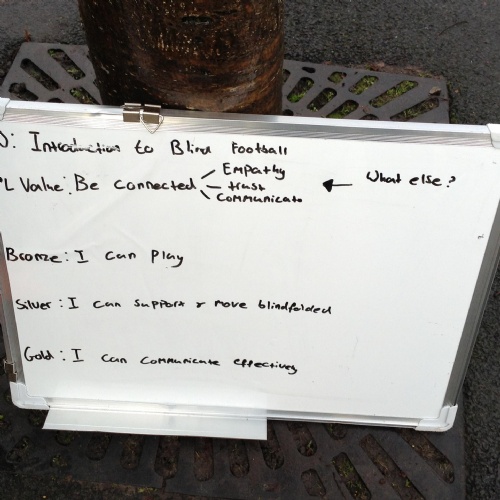 : Introduction to Blind Football
L Value: Be connected
Empathy
trust
Communicate
What else?
Bronze: I can play
Silver: I can support & move blindfolded
Gold: I can communicate effectively